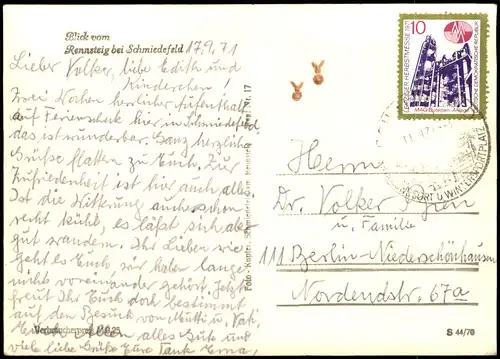 Blick vom
Rennsteig bei Schmiedefeld
17.9.71
Lieber Volker, liebe Edith und
Kinderchen!
Zwei Wochen herrlicher Aufenthalt
auf Ferienscheck hier in Schmiedefeld,
das ist wunderbar. Ganz herzliche
Grüße flattern zu Euch. Zur
Zufriedenheit ist hier auch alles.
Ist die Witterung auch schon
recht kühl, es läßt sich aber
gut wandern. Ihr Lieben wie
geht es Euch, wir haben lange
nichts voneinander gehört. Jetzt
freut Ihr Euch doch bestimmt
auf den Besuch von Mutti u. Vati.
Euch allen alles Gute und
viele liebe Grüße Eure Tante Erna
Verbraucherpreis M 0,25
Foto-Kunst Schmiedefeld am Rennsteig 17
10
LEIPZIGER HERBSTMESSE 1971
DEUTSCHE DEMOKRATISCHE REPUBLIK
MAG-Butadien-Anlage
KURORT U. WINTERSPORTPLATZ
Herrn
Dr. Volker
u. Familie
111 Berlin-Niederschönhausen
Nordendstr. 67a
S 44/70